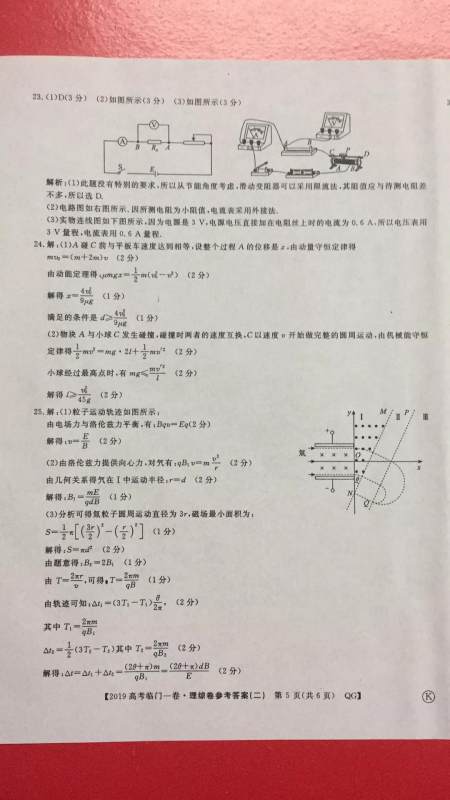 23.(1)D(3分) (2)如图所示(3分) (3)如图所示(3分)
解析:(1)此题没有特别的要求,所以从节能角度考虑,滑动变阻器可以采用限流法,其阻值应与待测电阻差
不多,所以选D.
(2)电路图如右图所示.因所测电阻为小阻值,电流表采用外接法.
(3)实物连线图如下图所示,因为电源是3 V,电源电压直接加在电阻丝上时的电流为0.6 A,所以电压表用
3 V量程,电流表用0.6 A量程.
24.解:(1)A碰C前与平板车速度达到相等,设整个过程A的位移是x,由动量守恒定律得
mv₀=(m+2m)v (2分)
由动能定理得:μmgx=1/2 m(v₀²-v²) (2分)
解得x=4v₀²/9μg (1分)
满足的条件是d≥4v₀²/9μg (1分)
(2)物块A与小球C发生碰撞,碰撞时两者的速度互换,C以速度v开始做完整的圆周运动,由机械能守恒
定律得1/2 mv²=mg·2l+1/2 mv′² (2分)
小球经过最高点时,有mg≤mv′²/l (2分)
解得l≥v₀²/45g (2分)
25.解:(1)粒子运动轨迹如图所示:
由电场力与洛伦兹力平衡,有:Bqv=Eq(2分)
解得:v=E/B (2分)
(2)由洛伦兹力提供向心力,对氕有:qB₁v=m v²/r (2分)
由几何关系得氕在Ⅰ中运动半径:r=d (2分)
解得:B₁=mE/qdB (1分)
(3)分析可得氚粒子圆周运动直径为3r,磁场最小面积为:
S=1/2 π[(3r/2)²-(r/2)²] (1分)
解得:S=πd² (2分)
由题意得:B₂=2B₁ (1分)
由T=2πr/v,可得:T=2πm/qB (1分)
由轨迹可知:Δt₁=(3T₁-T₁)θ/2π, (2分)
其中T₁=2πm/qB₁
Δt₂=1/2(3T₂-T₂)其中T₂=2πm/qB₂ (2分)
解得:Δt=Δt₁+Δt₂=(2θ+π)m/qB₁=(2θ+π)dB/E (2分)
【2019高考临门一卷·理综卷参考答案(二) 第5页(共6页) QG】
K